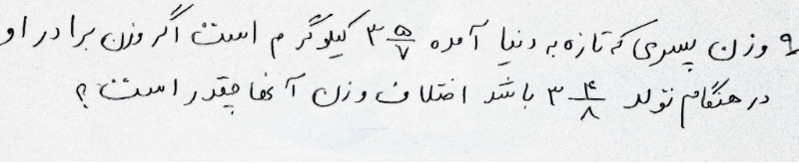 ۹ وزن پسری که تازه به دنیا آمده ۳ ۵/۷ کیلوگرم است اگر وزن برادر او
در هنگام تولد ۳ ۴/۸ باشد اختلاف وزن آنها چقدر است؟